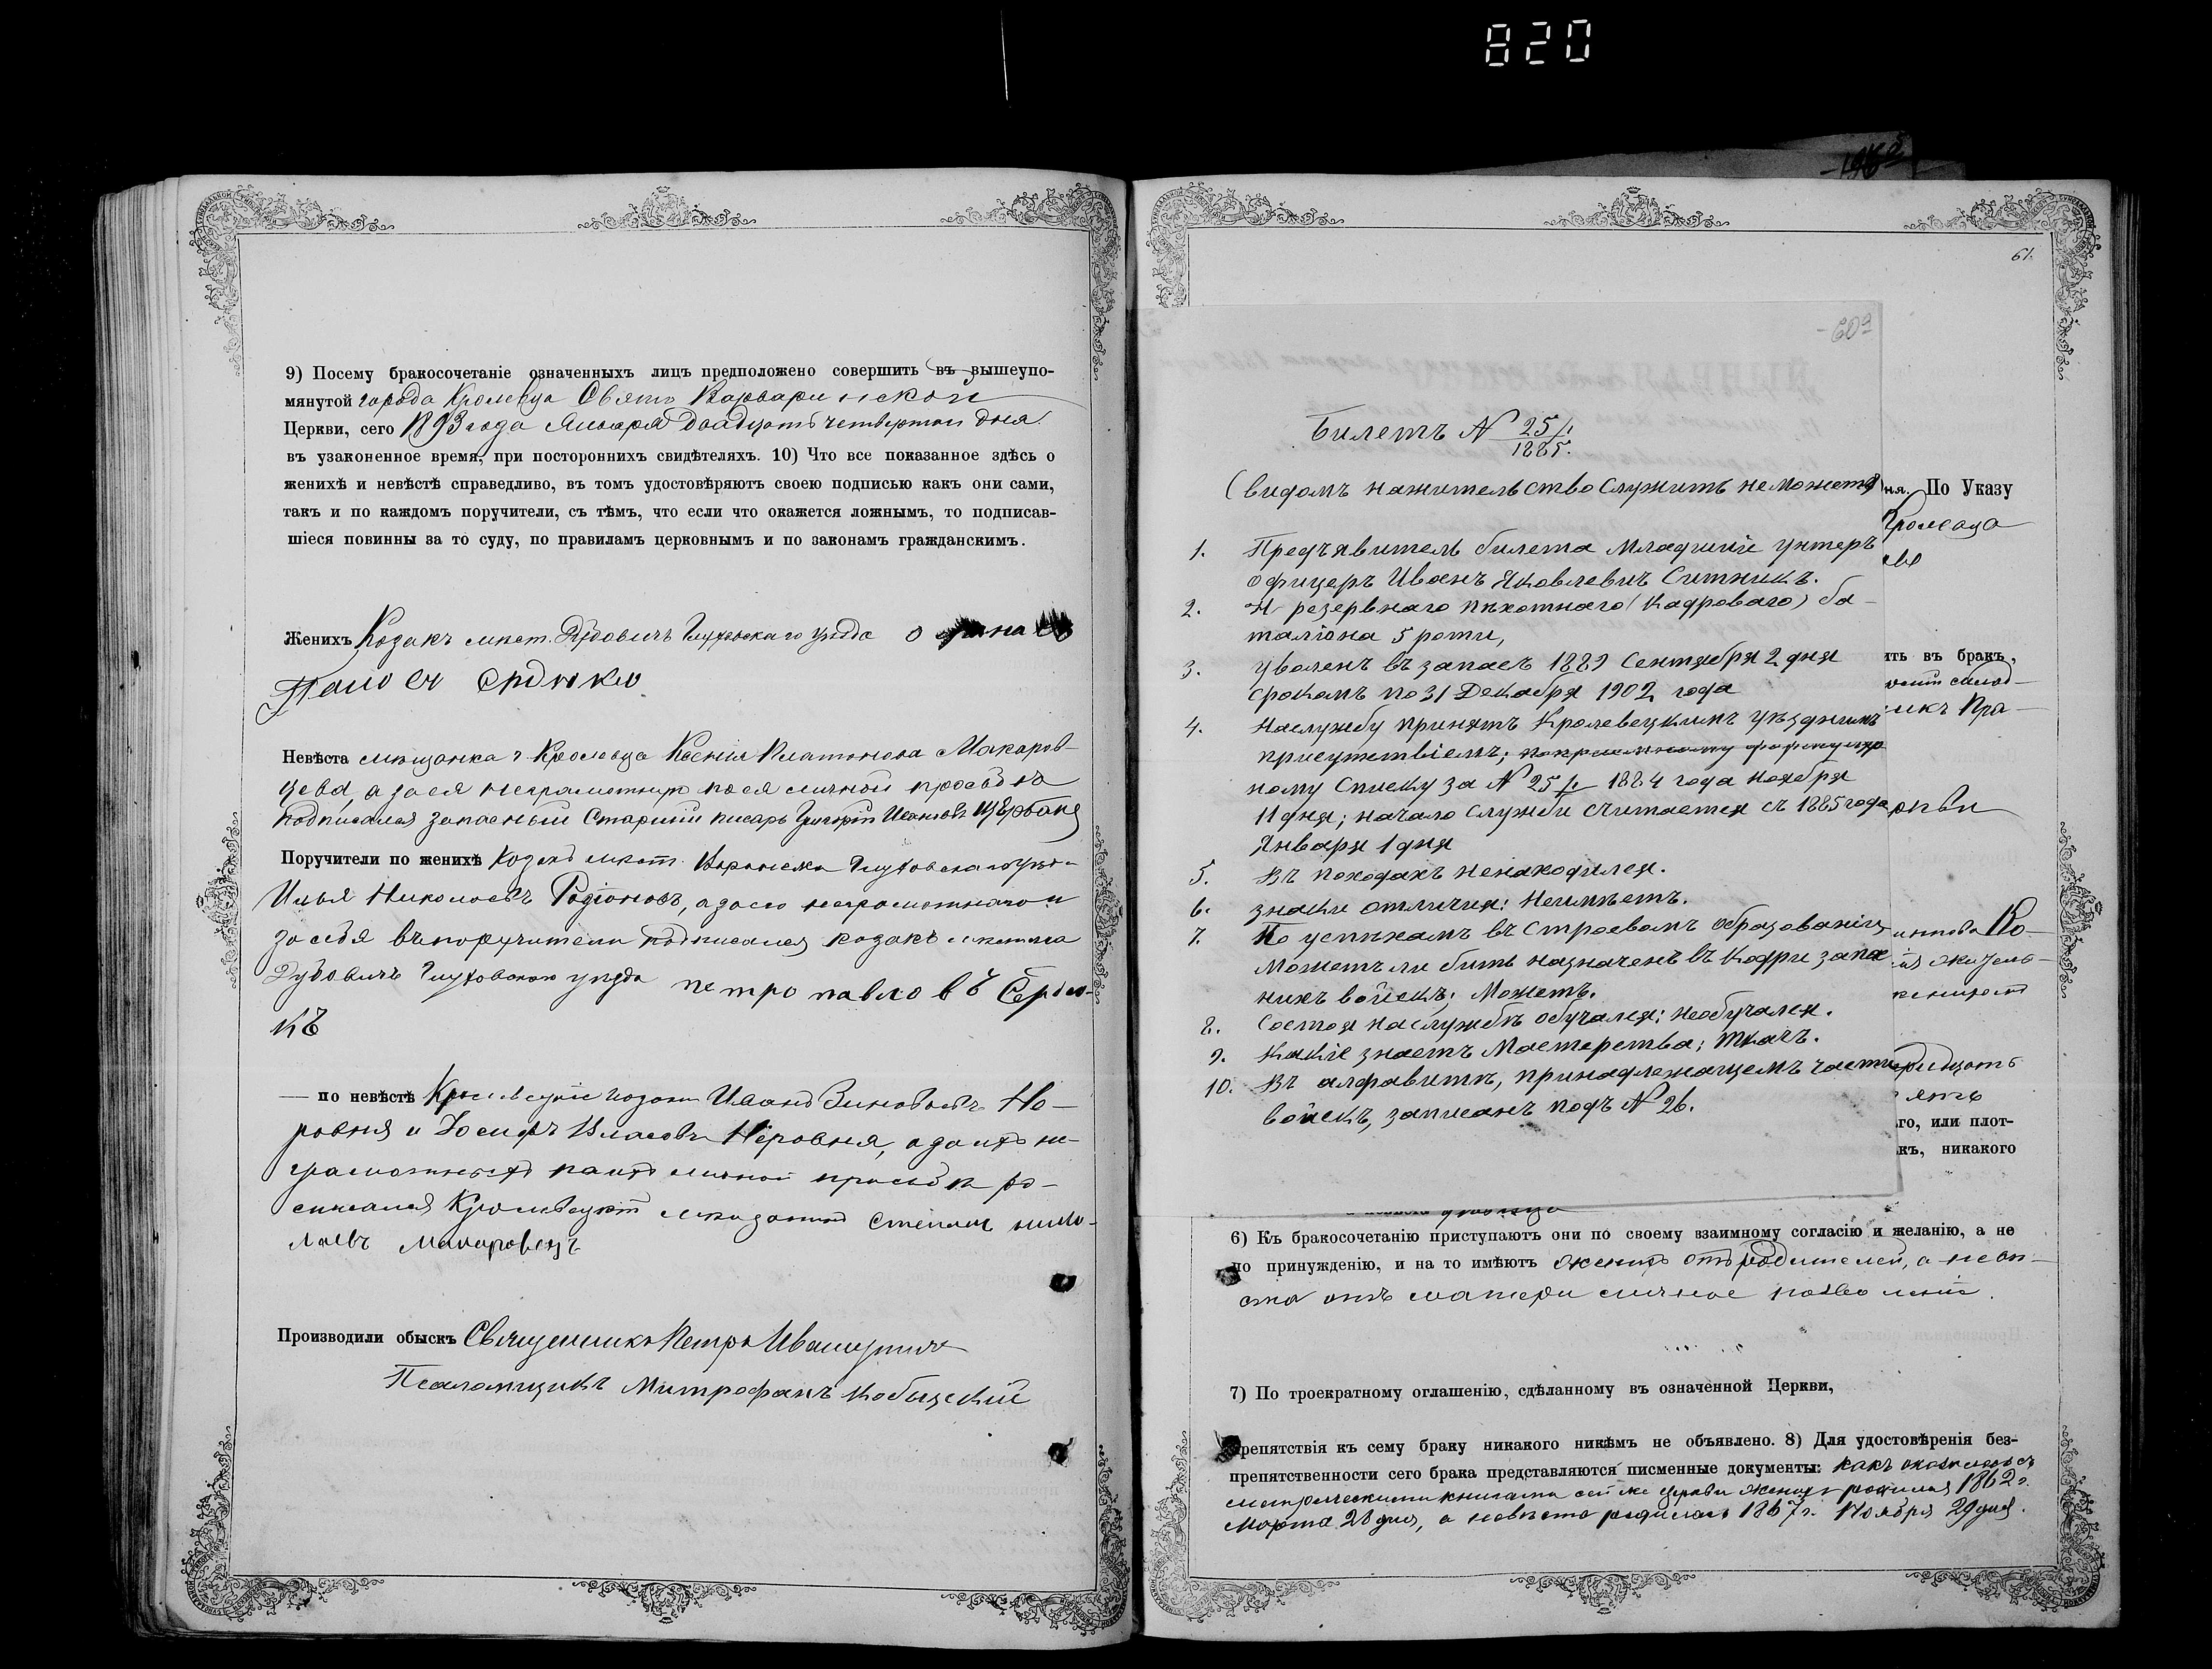 820
9) Посему бракосочетаніе означенныхъ лицъ предположено совершить въ вышеупо-
мянутой города Кролевца Свято Варваринской
Церкви, сего 1893 года Января двадцать четвертаго дня
въ узаконенное время, при постороннихъ свидѣтеляхъ. 10) Что все показанное здѣсь о
женихѣ и невѣстѣ справедливо, въ томъ удостовѣряютъ своею подписью какъ они сами,
такъ и по каждомъ поручители, съ тѣмъ, что если что окажется ложнымъ, то подписав-
шіеся повинны за то суду, по правиламъ церковнымъ и по законамъ гражданскимъ.
Женихъ Козакъ мѣст. Глуховскаго уѣзда
Сердюко
Невѣста мѣщанка г. Кролевца Ксенія Платонова Макаров-
цева, а за ея неграмотную по ея личной просьбѣ
подписался запасный Старшій писарь Григорій Ивановъ
Поручители по женихѣ козакъ мѣст. Воронежа Глуховскаго уѣзда
Илья Николаевъ Родіоновъ, а за его неграмотнаго и
за себя въ поручители подписался козакъ мѣстечка
Дубовичъ Глуховского уѣзда петро павловъ Сердю-
къ
— по невѣстѣ Кролевецкіе козаки Иванъ Зиновьевъ Но-
ровня и Іосифъ Власовъ Норовня, а за ихъ не-
грамотныхъ по ихъ личной просьбѣ ро-
списался Кролевецкій мѣщанинъ Степанъ нико-
лаевъ Макаровецъ
Производили обыскъ Священникъ Петръ
Псаломщикъ Митрофанъ Кобыцскій
61.
60
Билетъ № 25/1
1885.
(видомъ нажительство Служить неможетъ)
ня. По Указу
Кролевца
1. Предъявитель билета Младшій унтеръ
офицеръ Иванъ Яковлевич Ситникъ.
2. резервнаго пѣхотнаго (Кадроваго) ба-
таліона 5 роти,
3. Уволенъ въ запасъ 1889 Сентября 2 дня
срокамъ по 31 Декабря 1902 года
ить въ бракъ,
4. Наслужбу принятъ Кролевецкимъ уѣзднимъ
присутствіемъ;
ному Списку за № 25/1 1884 года Ноября
11 дня; начало Служби считается съ 1885 года
Января 1 дня
5. Въ походахъ ненаходился.
6. знаки отличія: Неимѣетъ.
7. По успѣхамъ въ Строевомъ образованіи,
Можетъ ли бить назначенъ въ Кадри запас
нихъ войскъ; Можетъ.
8. Состоя наслужбѣ обучался: необучался.
9. Какіе знаетъ Мастерства; Ткачъ.
10. Въ алфавитѣ, принадлежащемъ части
войскъ, записанъ подъ № 26.
го, или плот-
къ, никакого
6) Къ бракосочетанію приступаютъ они по своему взаимному согласію и желанію, а не
по принужденію, и на то имѣютъ женихъ отъ родителей, а невѣ-
ста отъ матери личное позволеніе.
7) По троекратному оглашенію, сдѣланному въ означенной Церкви,
препятствія къ сему браку никакого никѣмъ не объявлено. 8) Для удостовѣренія без-
препятственности сего брака представляются писменные документы: какъ
метрическими книгами сей же церкви женихъ родился 1862 г.
Марта 28 дня, а невѣста родилась 1867 г. Ноября 29 дня.